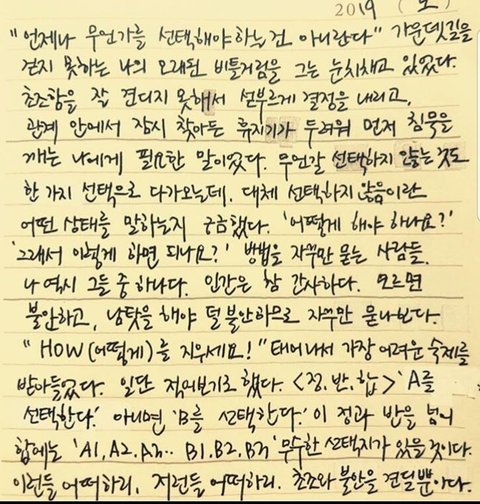 2019 (
"언제나 무언가를 선택해야 하는 건 아니란다" 가운뎃길을
걷지 못하는 나의 오래된 비틀거림을 그는 눈치채고 있었다.
초조함을 잘 견디지 못해서 섣부르게 결정을 내리고,
관계 안에서 잠시 찾아든 휴지기가 두려워 먼저 침묵을
깨는 나에게 필요한 말이었다. 무언갈 선택하지 않는 것도
한 가지 선택으로 다가오는데, 대체 선택하지 않음이란
어떤 상태를 말하는지 궁금했다. '어떻게 해야 하나요?'
'그래서 이렇게 하면 되나요?' 방법을 자꾸만 묻는 사람들.
나 역시 그들 중 하나다. 인간은 참 간사하다. 모르면
불안하고, 남탓을 해야 덜 불안하므로 자꾸만 묻나보다.
"HOW(어떻게)를 지우세요!" 태어나서 가장 어려운 숙제를
받아들었다. 일단 적어보기로 했다. <정, 반, 합> 'A를
선택한다.' 아니면 'B를 선택한다.' 이 정과 반을 넘어
합에는 'A1, A2, An.. B1, B2, Bn' 무수한 선택지가 있을 것이다.
이런들 어떠하리, 저런들 어떠하리. 초조와 불안을 견딜 뿐이다.